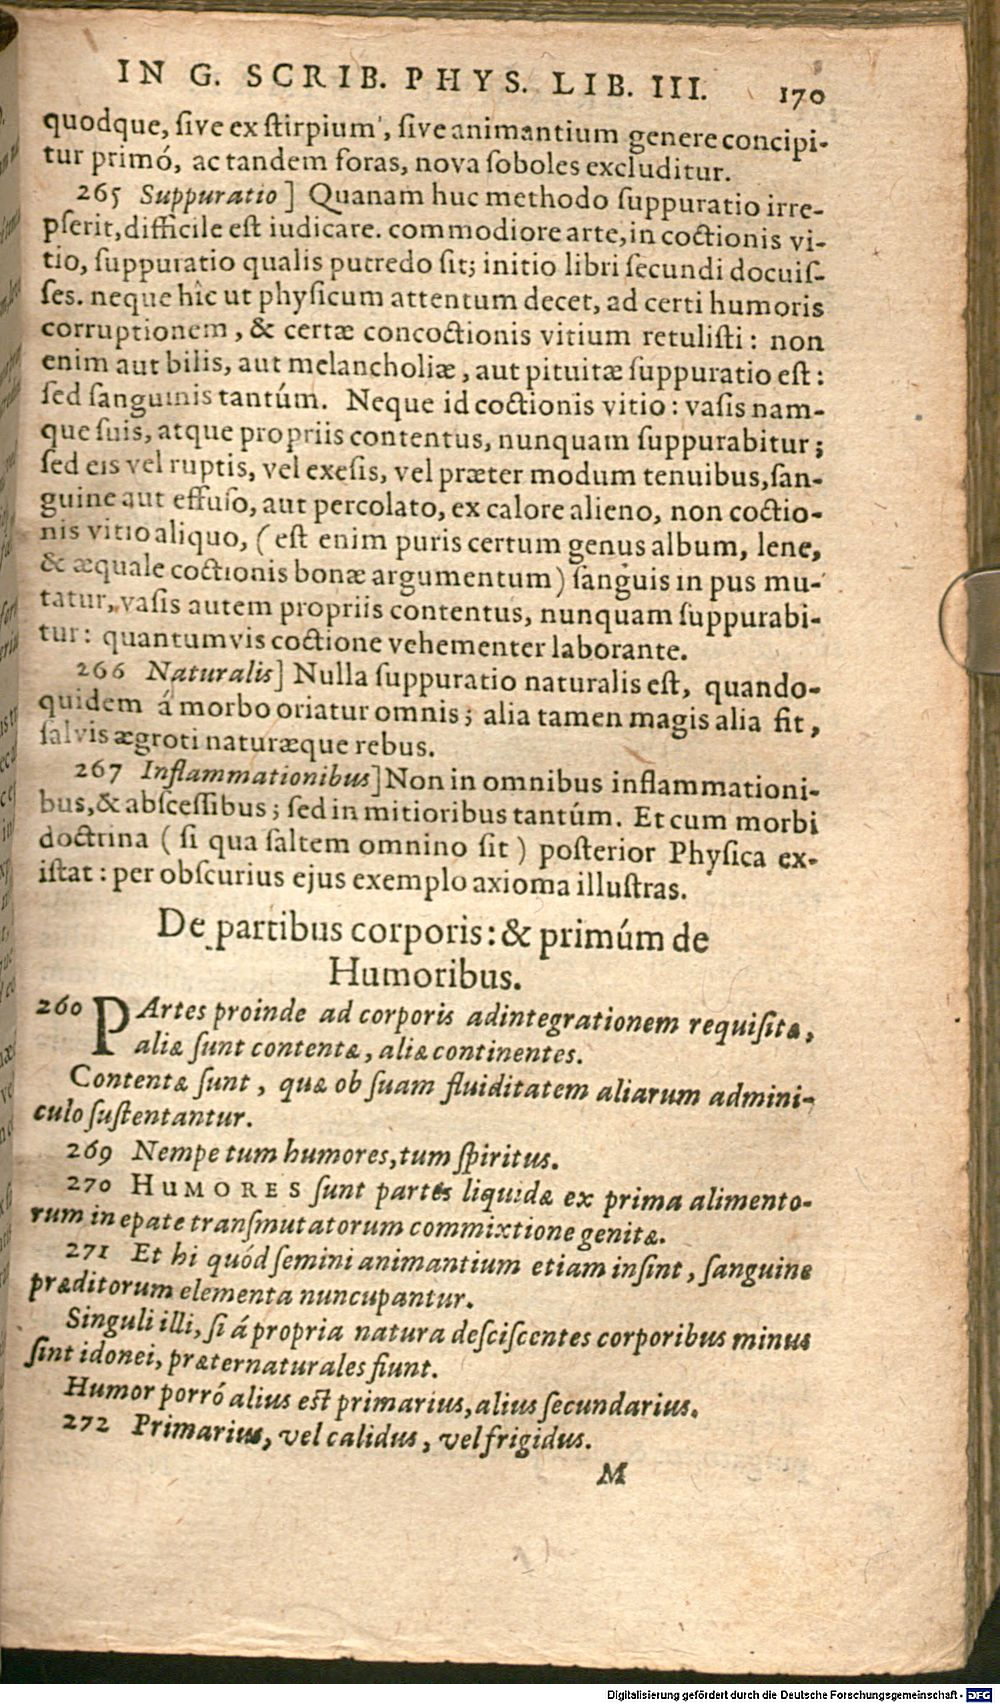 IN G. SCRIB. PHYS. LIB. III. 170
quodque, ſive ex ſtirpium, ſive animantium genere concipi-
tur primó, ac tandem foras, nova ſoboles excluditur.
265 Suppuratio] Quanam huc methodo ſuppuratio irre-
pſerit, difficile eſt iudicare. commodiore arte, in coctionis vi-
tio, ſuppuratio qualis putredo ſit; initio libri ſecundi docuiſ-
ſes. neque hîc ut phyſicum attentum decet, ad certi humoris
corruptionem, & certæ concoctionis vitium retuliſti: non
enim aut bilis, aut melancholiæ, aut pituitæ ſuppuratio eſt:
ſed ſanguinis tantúm. Neque id coctionis vitio: vaſis nam-
que ſuis, atque propriis contentus, nunquam ſuppurabitur;
ſed eis vel ruptis, vel exeſis, vel præter modum tenuibus, ſan-
guine aut effuſo, aut percolato, ex calore alieno, non coctio-
nis vitio aliquo, (eſt enim puris certum genus album, lene,
& æquale coctionis bonæ argumentum) ſanguis in pus mu-
tatur, vaſis autem propriis contentus, nunquam ſuppurabi-
tur: quantumvis coctione vehementer laborante.
266 Naturalis] Nulla ſuppuratio naturalis eſt, quando-
quidem á morbo oriatur omnis; alia tamen magis alia fit,
ſalvis ægroti naturæque rebus.
267 Inflammationibus] Non in omnibus inflammationi-
bus, & abſceſſibus; ſed in mitioribus tantúm. Et cum morbi
doctrina (ſi qua ſaltem omnino ſit) poſterior Phyſica ex-
iſtat: per obſcurius ejus exemplo axioma illuſtras.
De partibus corporis: & primúm de
Humoribus.
260 PArtes proinde ad corporis adintegrationem requiſitæ,
aliæ ſunt contentæ, aliæ continentes.
Contentæ ſunt, quæ ob ſuam fluiditatem aliarum admini-
culo ſuſtentantur.
269 Nempe tum humores, tum ſpiritus.
270 HUMORES ſunt partes liquidæ ex prima alimento-
rum in epate tranſmutatorum commixtione genitæ.
271 Et hi quód ſemini animantium etiam inſint, ſanguine
præditorum elementa nuncupantur.
Singuli illi, ſi á propria natura deſciſcentes corporibus minus
ſint idonei, præternaturales fiunt.
Humor porró alius eſt primarius, alius ſecundarius.
272 Primarius, vel calidus, vel frigidus.
M
Digitalisierung gefördert durch die Deutsche Forschungsgemeinschaft - DFG